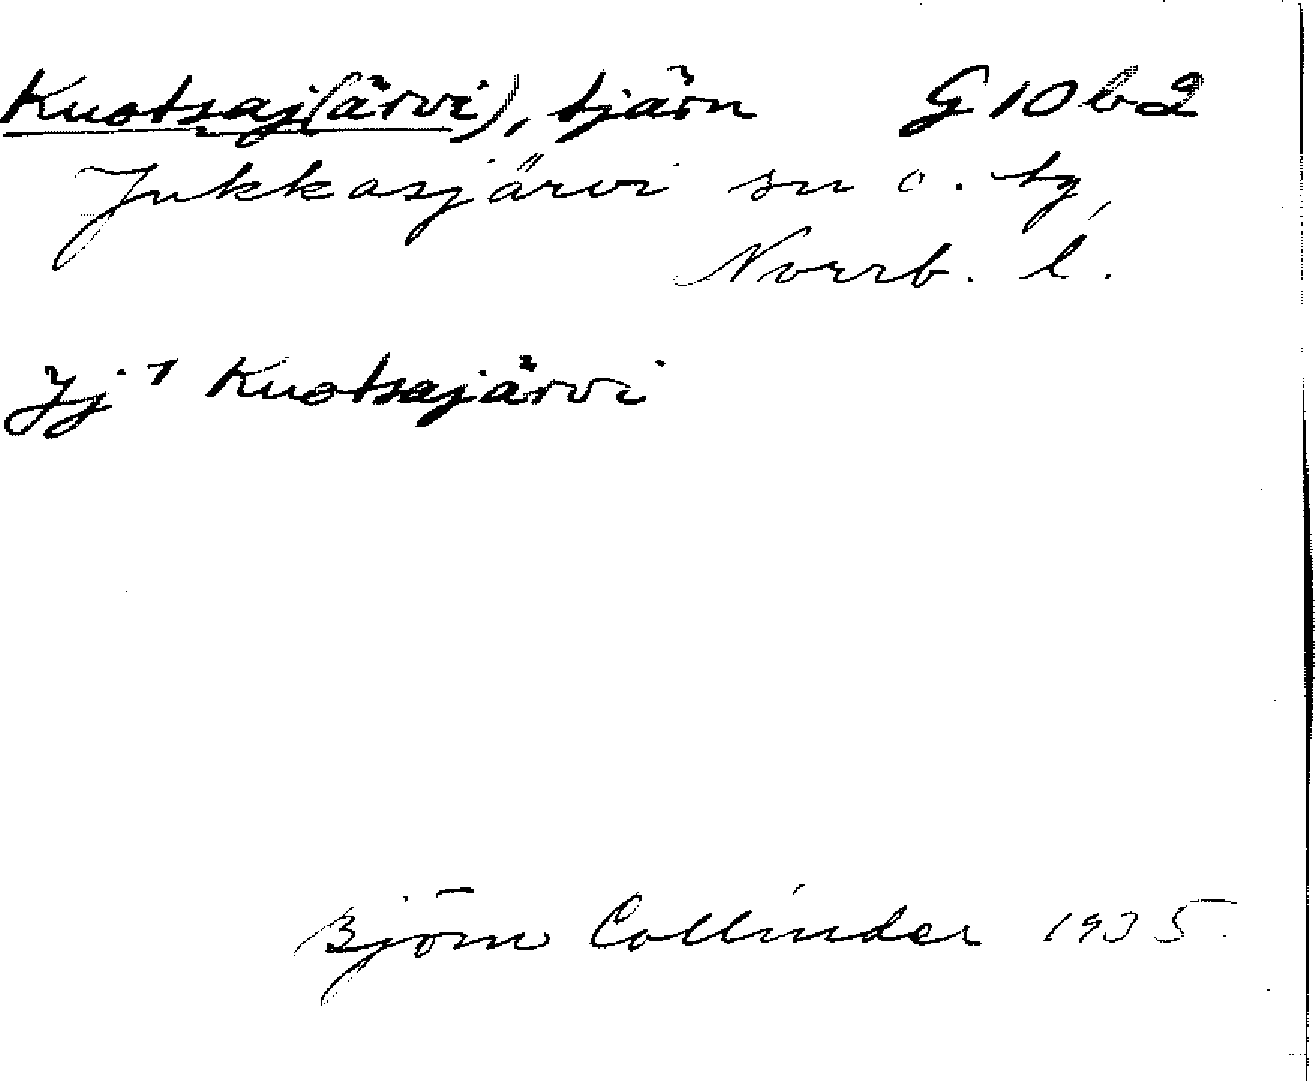 Kuotsaj(ärvi), tjärn G 10 b 2
Jukkasjärvi sn o. tg,
Norrb. l.
Jj 1 Kuotsajärvi
Björn Collinder 1935.